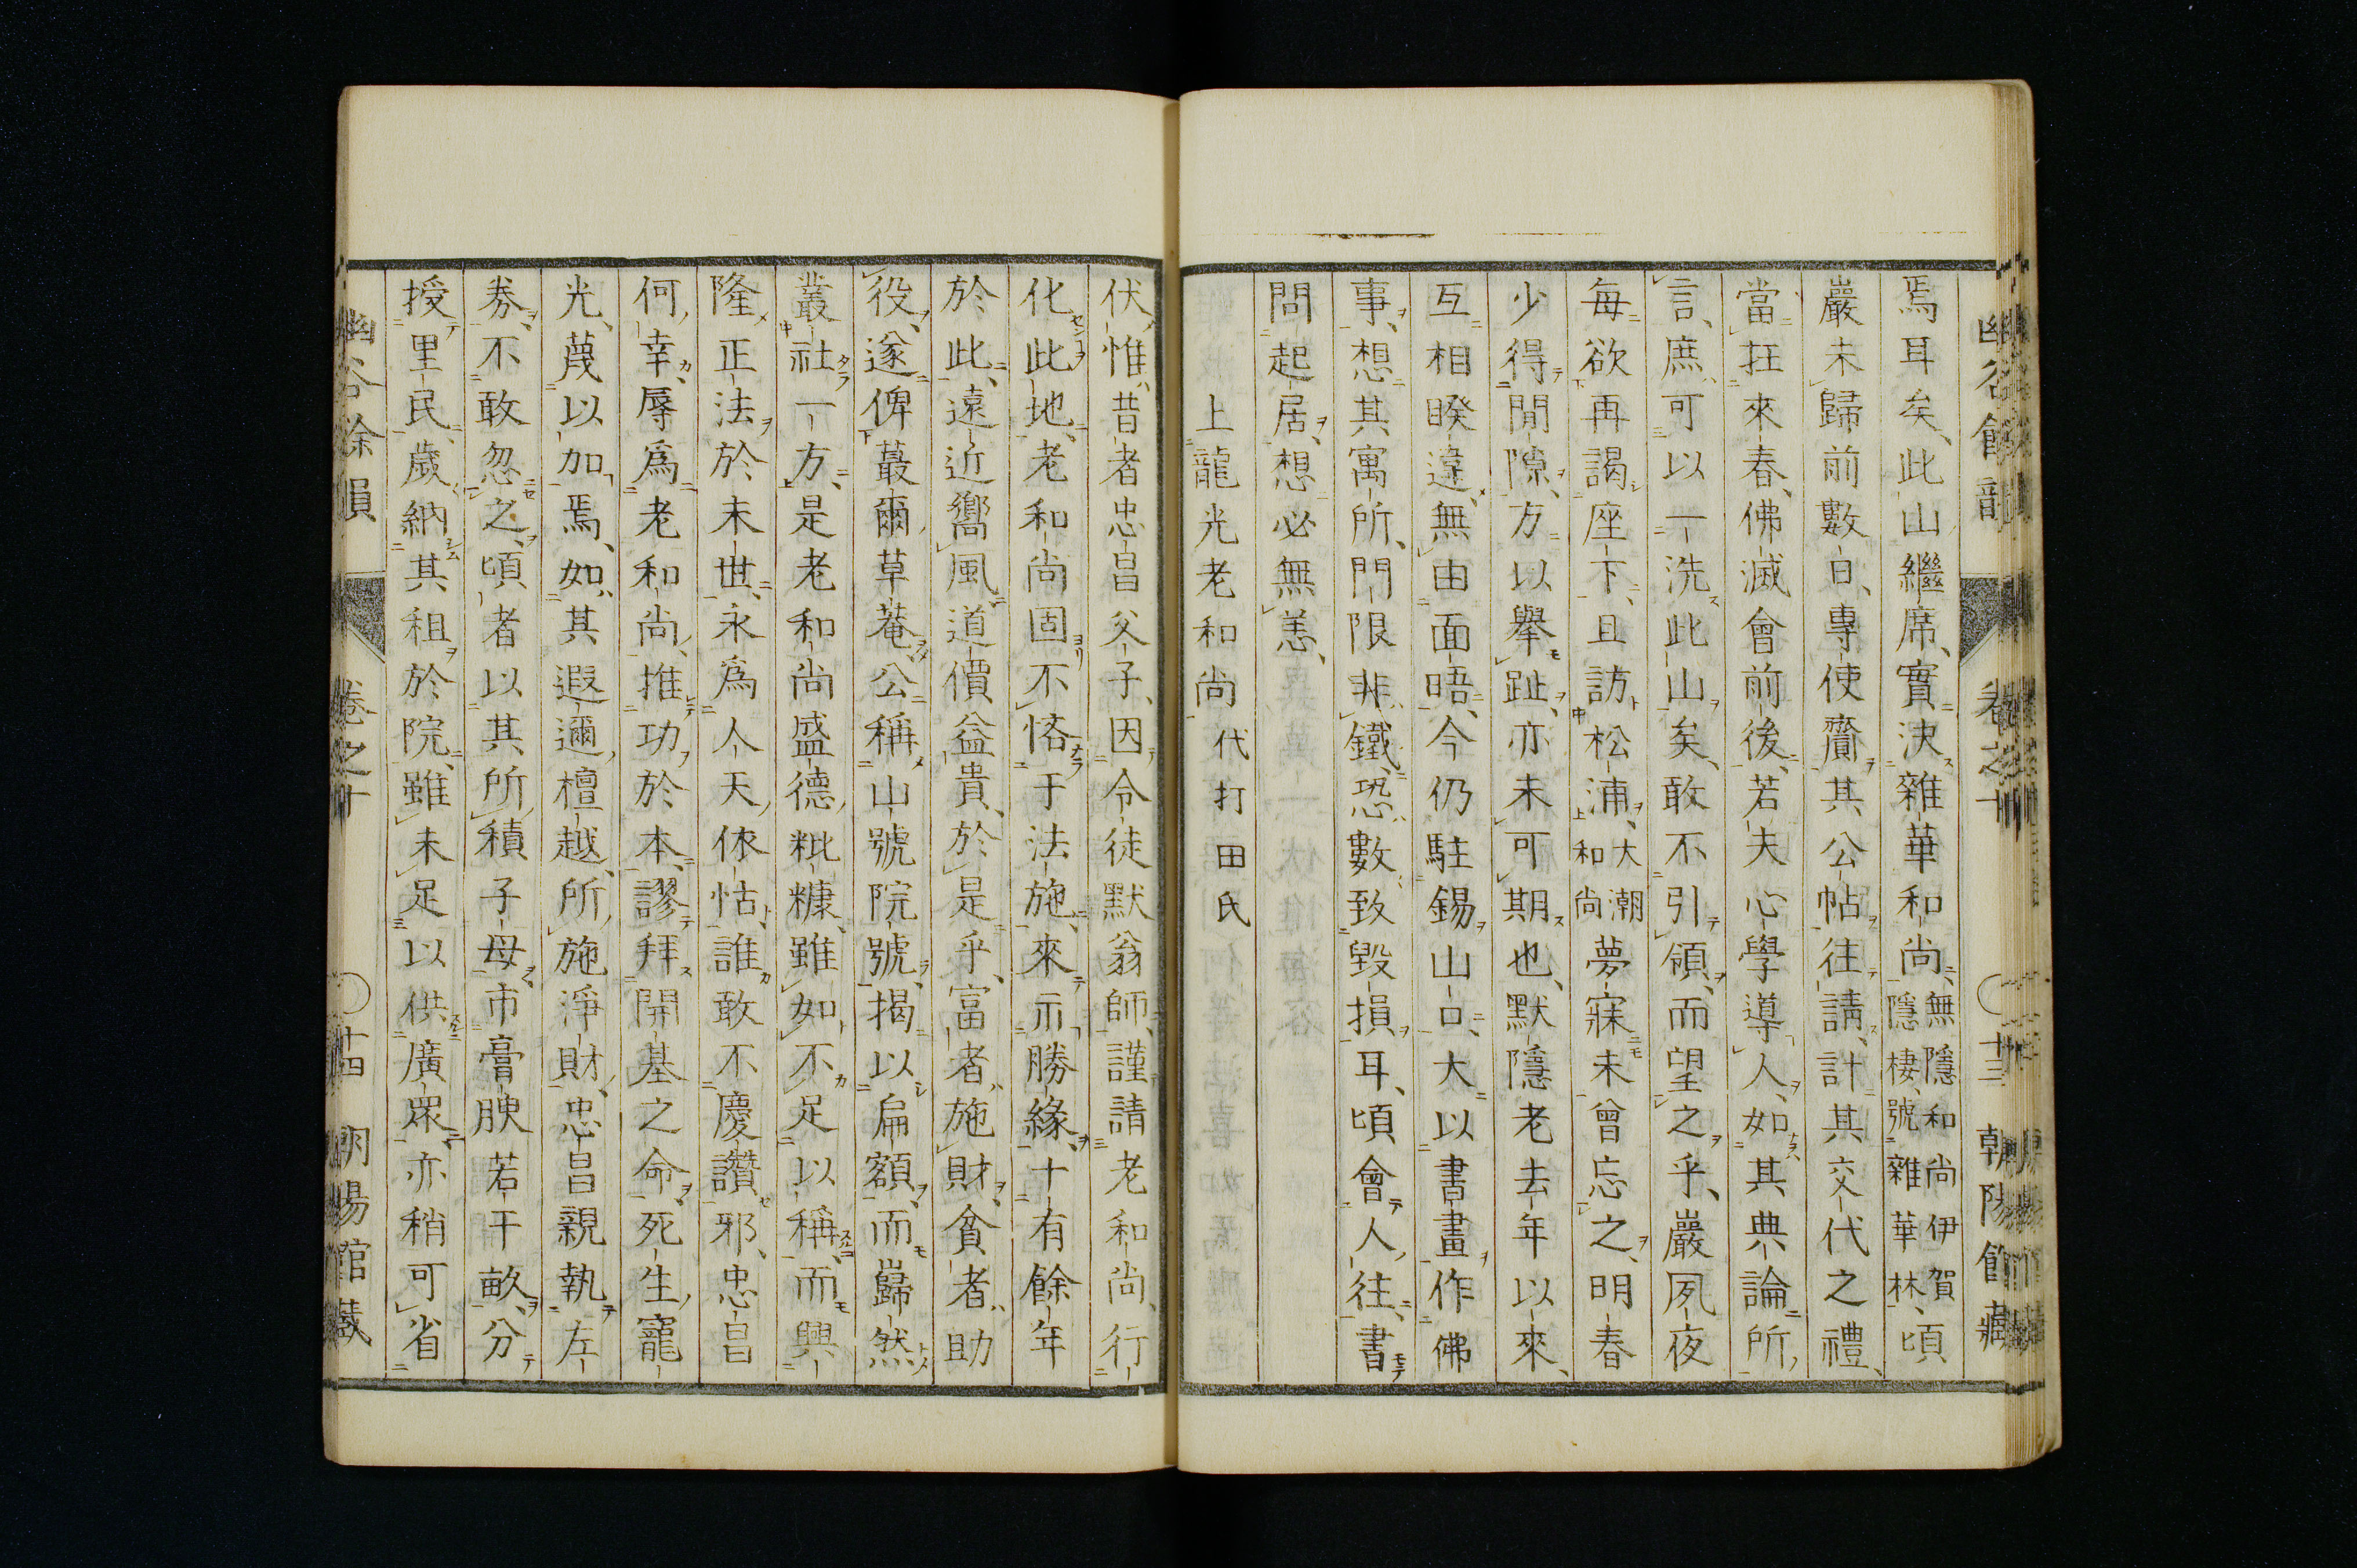 焉耳矣、此山繼席、實決雜華和尚、無隱和尚伊賀隱棲、號雜華林、頃
巖未歸前數日、專使齎其公帖往請、計其交代之禮、
當在來春、佛滅會前後、若夫心學導人、如其典論所
言、庶可以一洗此山矣、敢不引領、而望之乎、巖夙夜
每欲再謁座下、且訪松浦、大潮和尚夢寐未曾忘之、明春
少得閒隙、方以擧趾、亦未可期也、默隱老去年以來、
互相睽違、無由面晤、今仍駐錫山口、大以書畫作佛
事、想其寓所、門限非鐵、恐數致毀損耳、頃會人往、書
問起居、想必無恙、
上龍光老和尚 代打田氏
伏惟昔者忠昌父子、因令徒默翁師、謹請老和尚、行
化此地、老和尚固不悋于法施、來示勝緣、十有餘年
於此、遠近嚮風、道價益貴、於是乎、富者施財、貧者助
役、遂俾蕞爾草菴、公稱山號院號、揭以扁額、而巋然
叢社一方、是老和尚盛德、粃糠、雖如不足以稱、而興
隆正法於末世、永爲人天依怙、誰敢不慶讚邪、忠昌
何幸辱爲老和尚、推功於本、謬拜開基之命、死生寵
光、蔑以加焉、如其遐邇檀越、所施淨財、忠昌親執左
券、不敢忽之、頃者以其所積子母、市膏腴若干畝、分
授里民、歲納其租於院、雖未足以供廣眾、亦稍可省
幽谷餘韻 卷之十 ○十三 朝陽館藏
幽谷餘韻 卷之十 ○十四 朝陽館藏